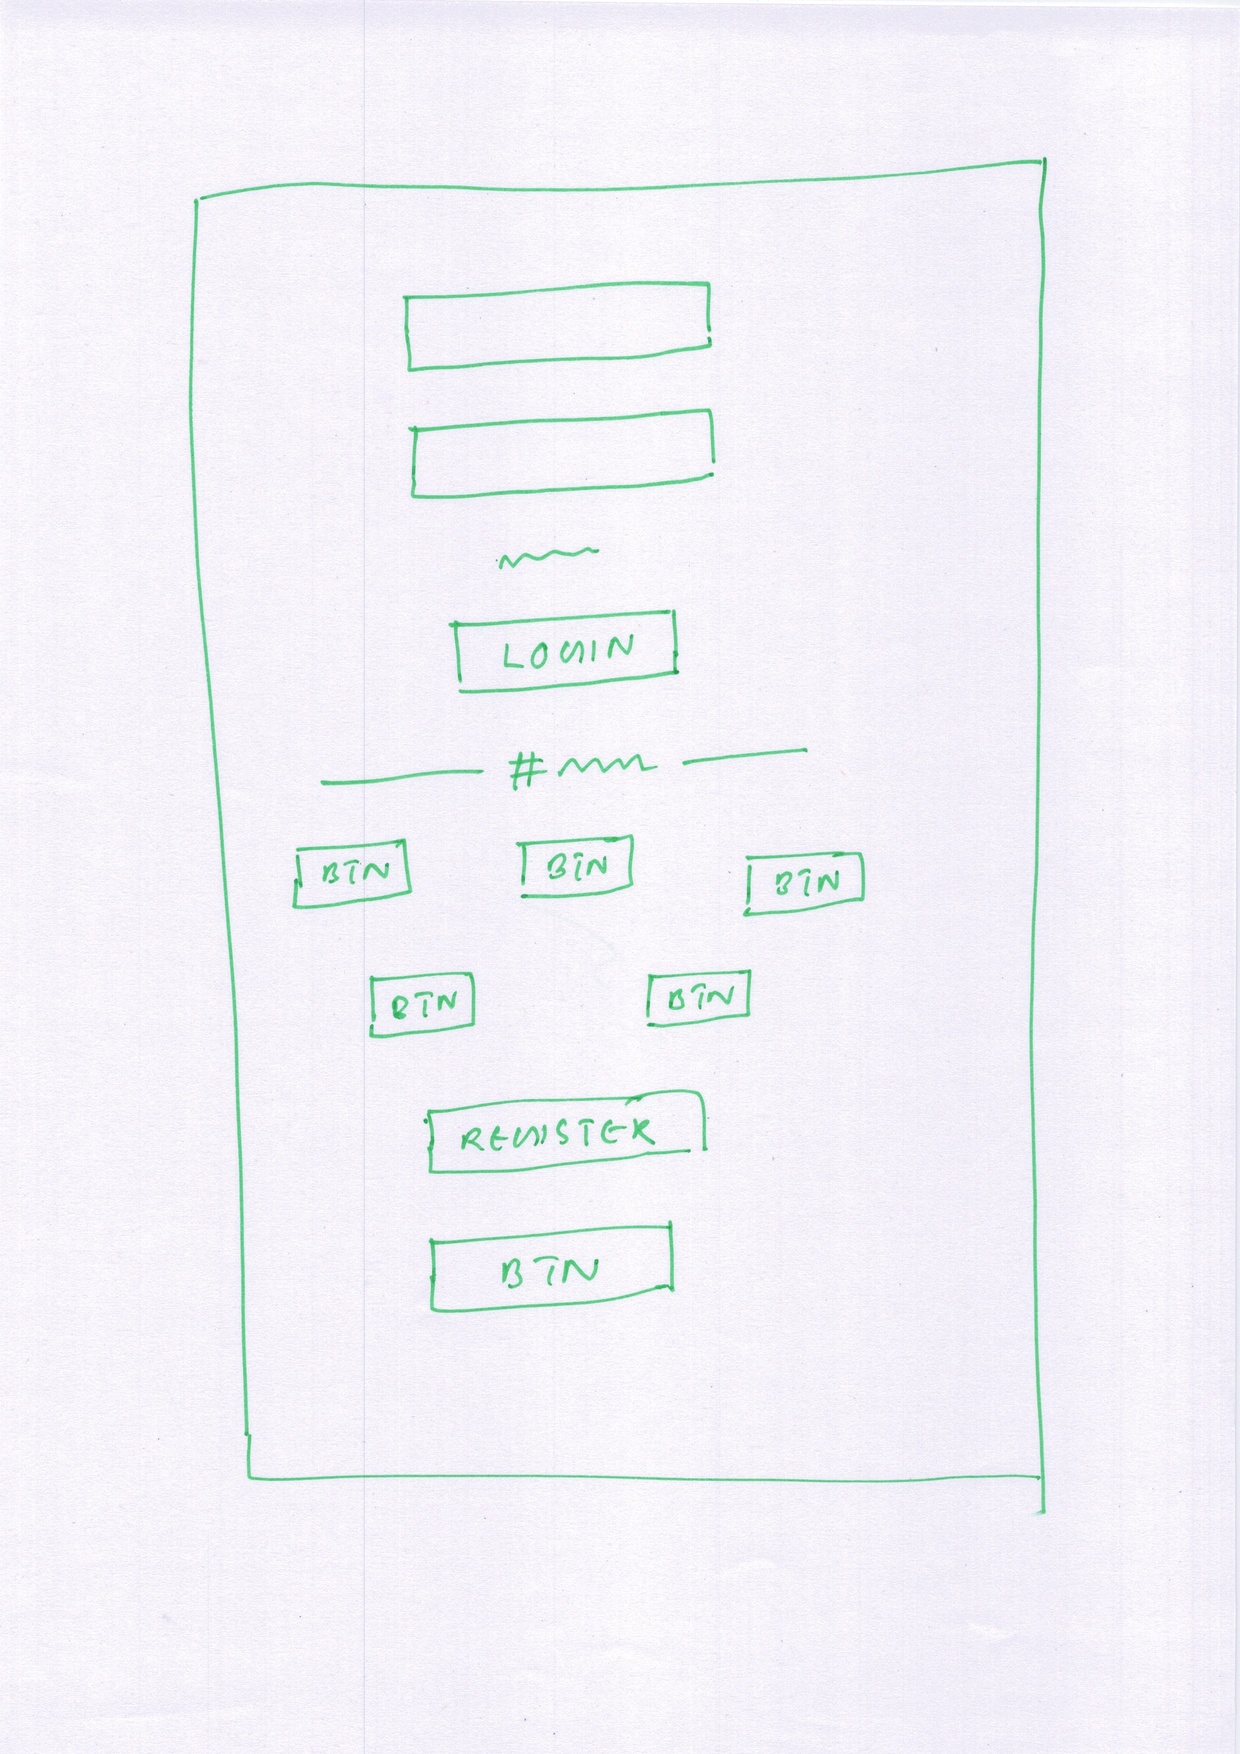 LOGIN
#
BTN BTN BTN
BTN BTN
REGISTER
BTN